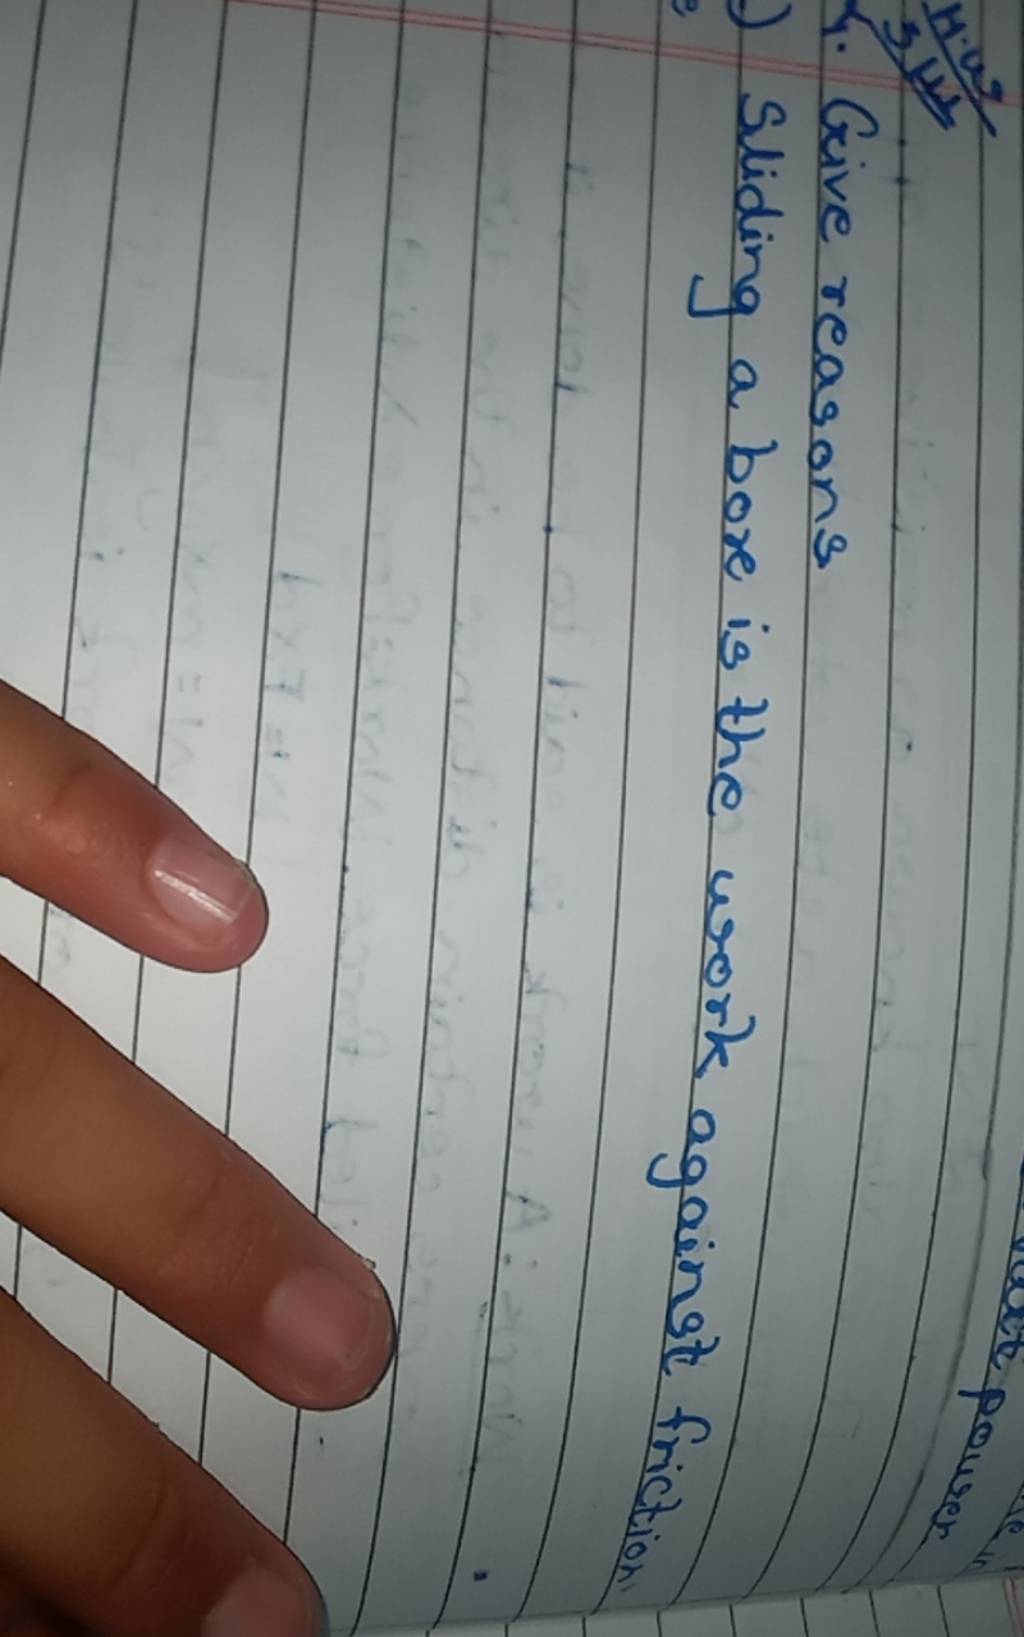 H.W
Give reasons
Sliding a boxe is the work against friction.
power